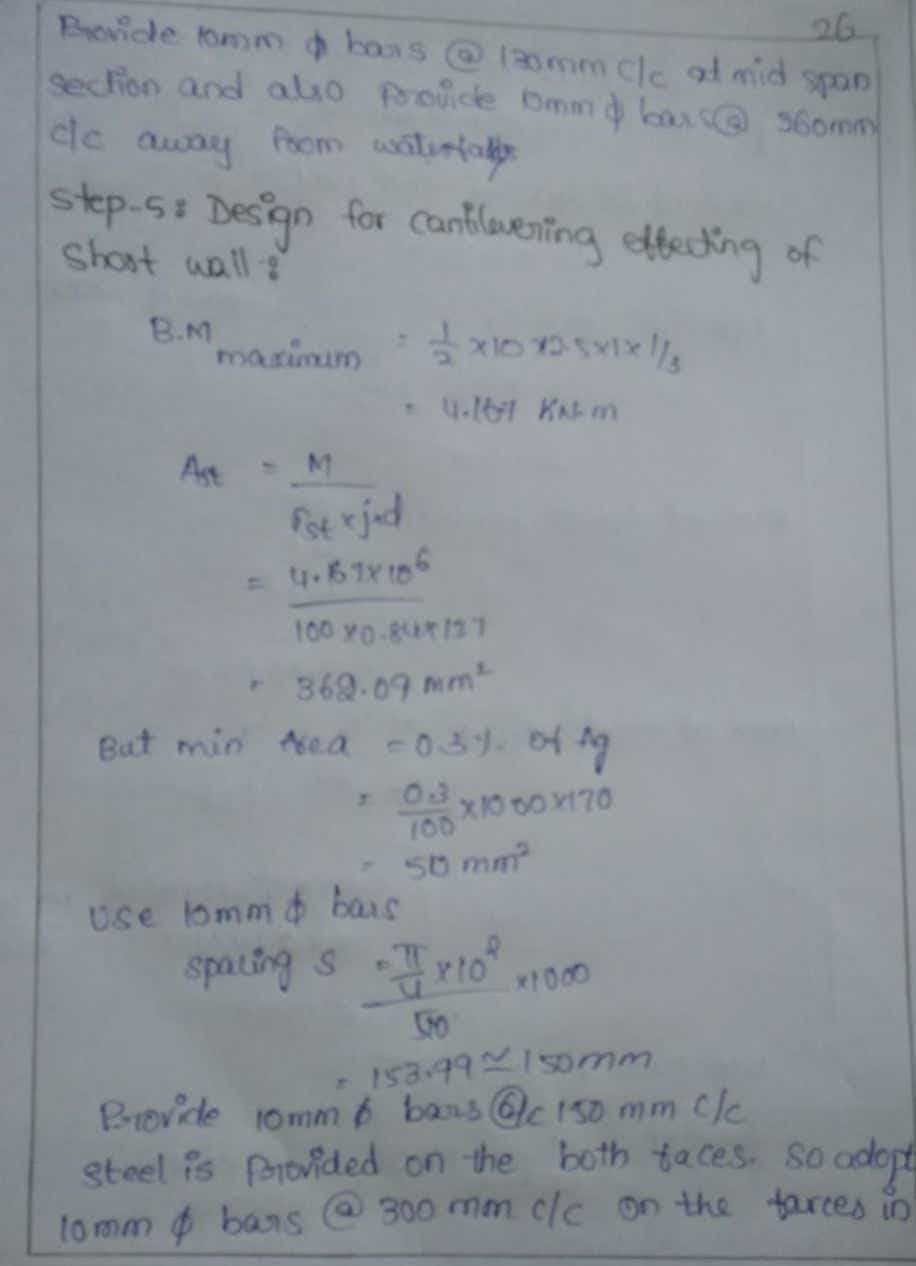 26
Provide 10mm ϕ bars @ 130mm c/c at mid span
section and also provide 10mm ϕ bars @ 560mm
c/c away from
Step-5: Design for cantilevering effecting of
Short wall :
B.M maximum = 1/2 ×10 ×2.5×1×1/3
= 4.167 KN-m
Ast = M / (σst × j×d)
= 4.167×10^6 / (100×0.84×137)
= 362.09 mm²
But min Area = 0.3% of Ag
= 0.3/100 ×1000×170
= 510 mm²
Use 10mm ϕ bars
spacing s = (π/4 ×10² / 510) ×1000
= 153.99 ≃ 150mm
Provide 10mm ϕ bars @c 150 mm c/c
steel is Provided on the both faces. So adopt
10mm ϕ bars @ 300 mm c/c on the farces in